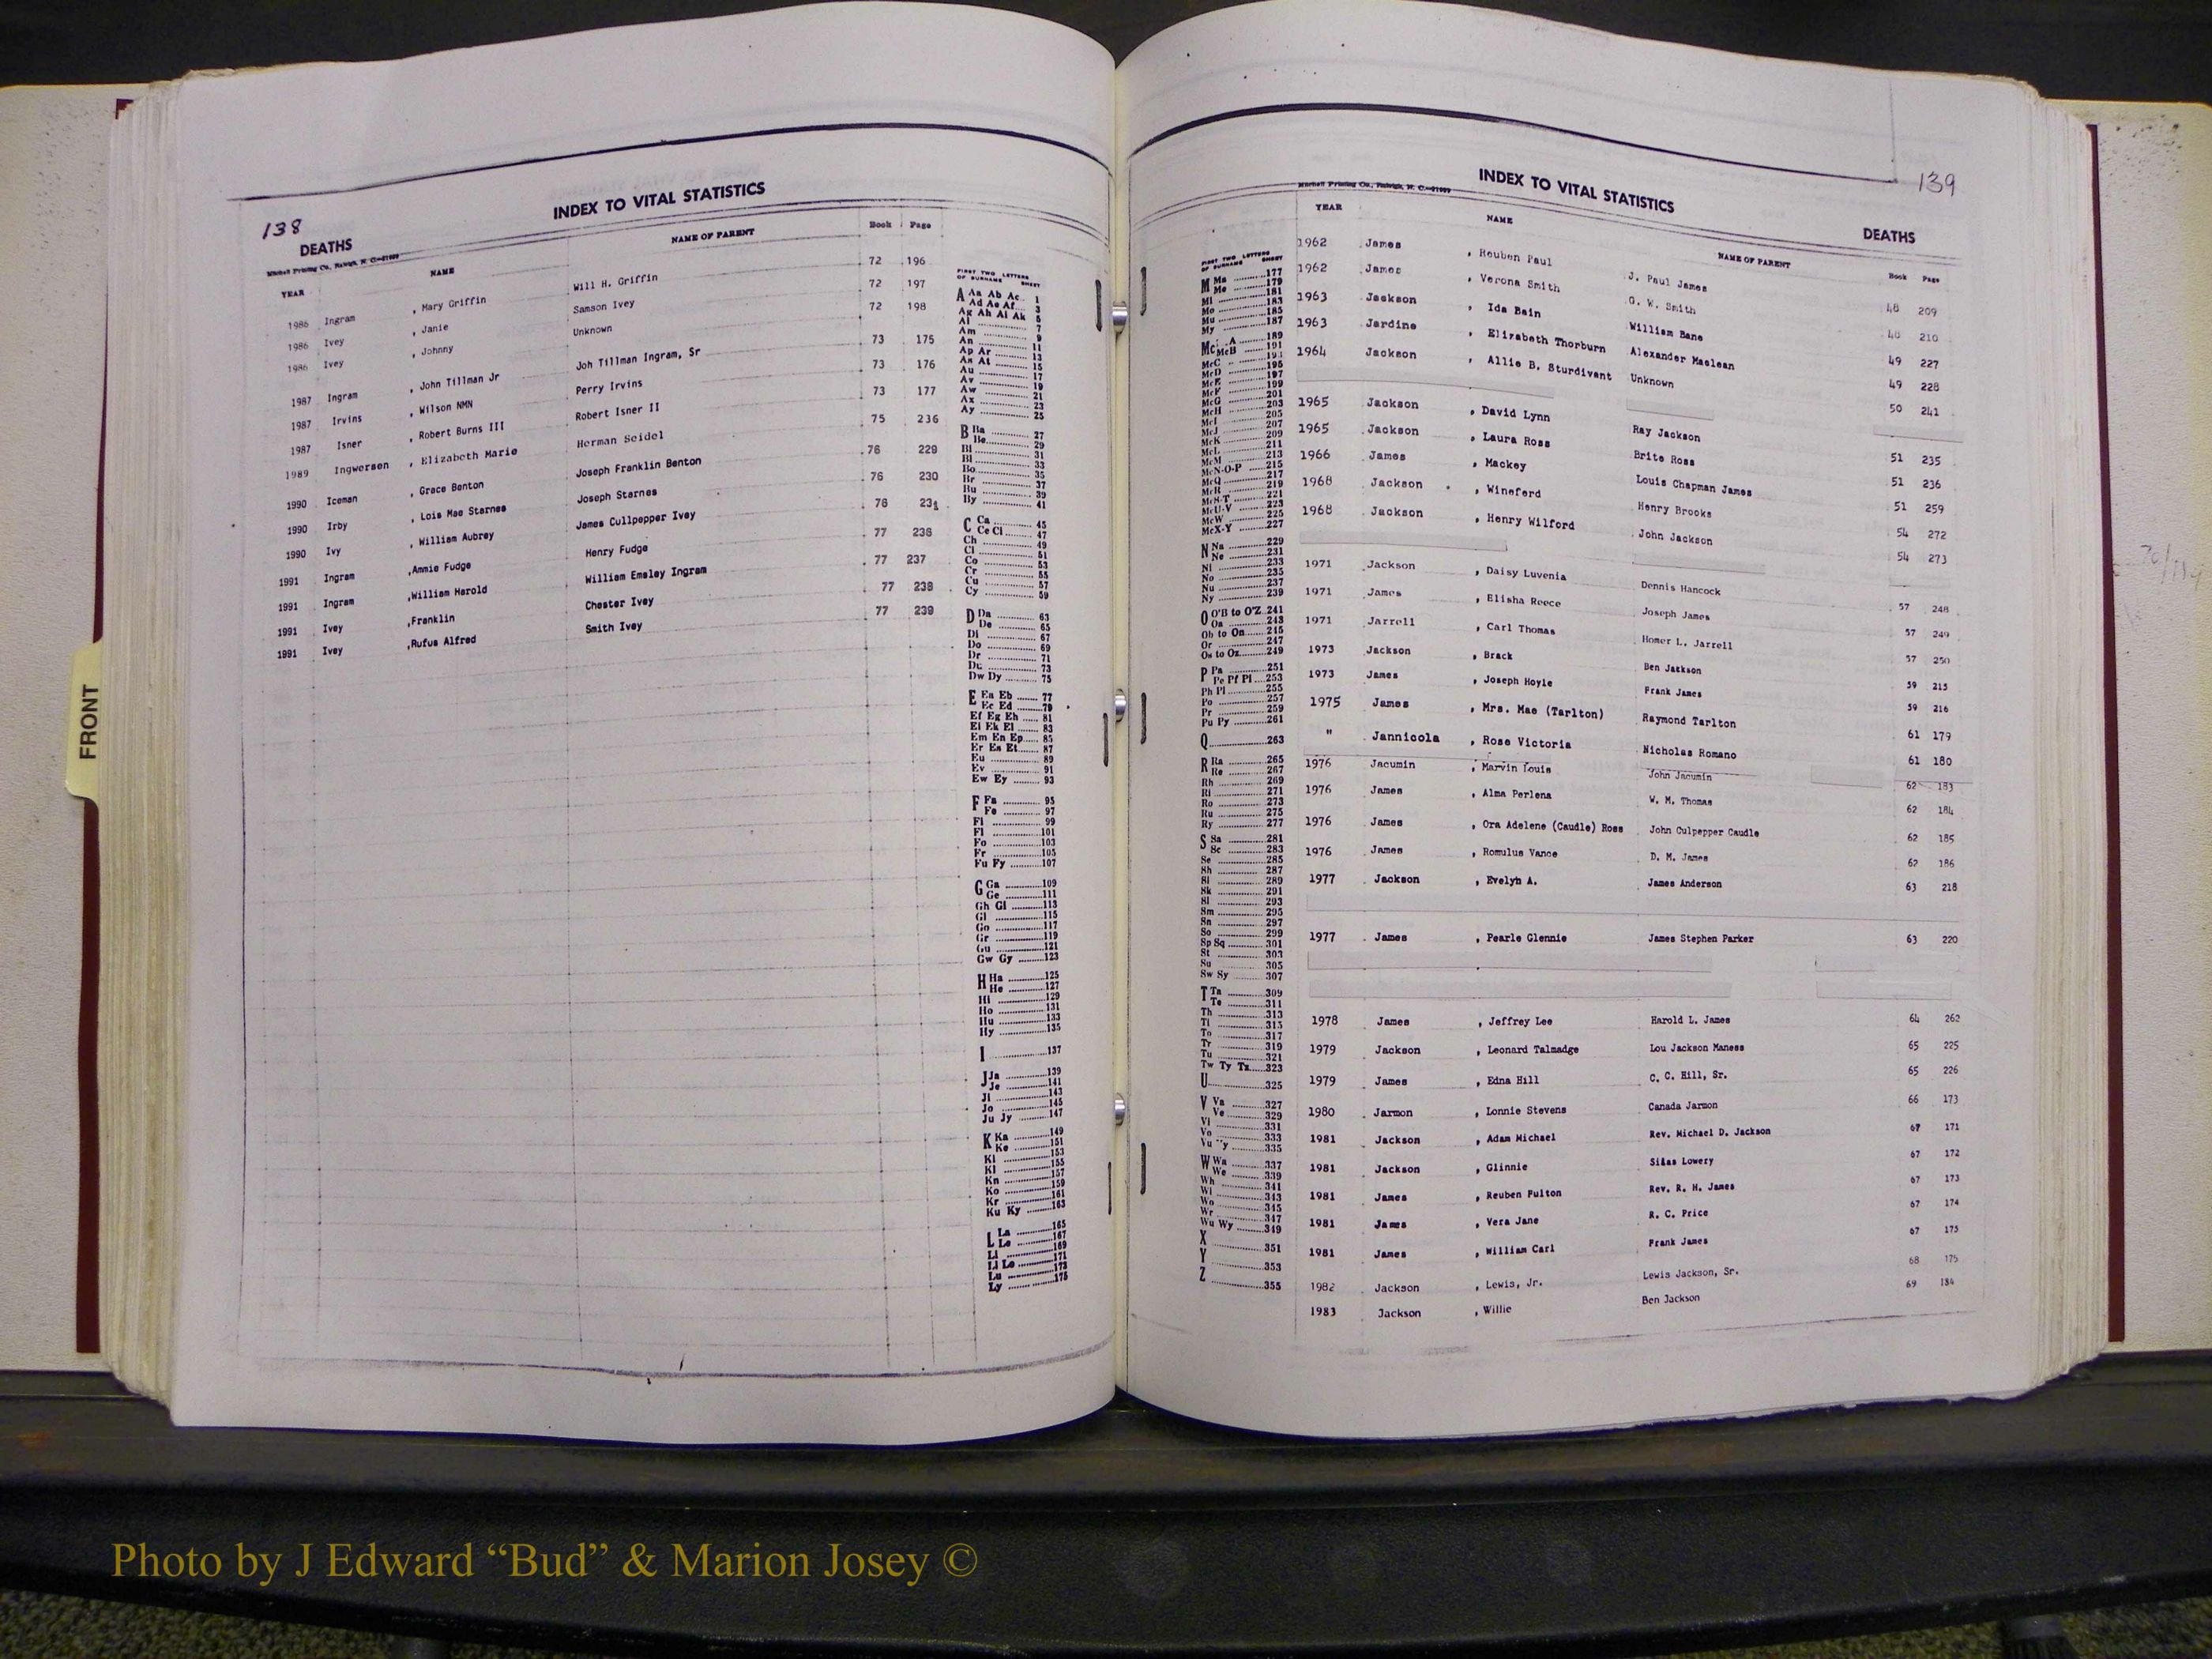 138
INDEX TO VITAL STATISTICS
DEATHS
Mitchell Printing Co., Raleigh, N. C.
YEAR NAME NAME OF PARENT Book Page
1986 Ingram , Mary Griffin Will H. Griffin 72 196
1986 Ivey , Janie Samson Ivey 72 197
1986 Ivey , Johnny Unknown 72 198
1987 Ingram , John Tillman Jr Joh Tillman Ingram, Sr 73 175
1987 Irvins , Wilson NMN Perry Irvins 73 176
1987 Isner , Robert Burns III Robert Isner II 73 177
1989 Ingwersen , Elizabeth Marie Herman Seidel 75 236
1990 Iceman , Grace Benton Joseph Franklin Benton 76 229
1990 Irby , Lois Mae Starnes Joseph Starnes 76 230
1990 Ivy , William Aubrey James Cullpepper Ivey 76 231
1991 Ingram ,Ammie Fudge Henry Fudge 77 236
1991 Ingram ,William Harold William Emsley Ingram 77 237
1991 Ivey ,Franklin Chester Ivey 77 238
1991 Ivey ,Rufus Alfred Smith Ivey 77 239
FIRST TWO LETTERS
OF SURNAME SHEET
A Aa Ab Ac 1
Ad Ae Af 3
Ag Ah Ai Ak 5
Al 7
Am 9
An 11
Ap Ar 13
As At 15
Au 17
Av 19
Aw 21
Ax 23
Ay 25
B Ba 27
Be 29
Bi 31
Bl 33
Bo 35
Br 37
Bu 39
By 41
C Ca 45
Ce Ci 47
Ch 49
Cl 51
Co 53
Cr 55
Cu 57
Cy 59
D Da 63
De 65
Di 67
Do 69
Dr 71
Du 73
Dw Dy 75
E Ea Eb 77
Ec Ed 79
Ef Eg Eh 81
Ei Ek El 83
Em En Ep 85
Er Es Et 87
Eu 89
Ev 91
Ew Ey 93
F Fa 95
Fe 97
Fi 99
Fl 101
Fo 103
Fr 105
Fu Fy 107
G Ga 109
Ge 111
Gh Gi 113
Gl 115
Go 117
Gr 119
Gu 121
Gw Gy 123
H Ha 125
He 127
Hi 129
Ho 131
Hu 133
Hy 135
I 137
J Ja 139
Je 141
Ji 143
Jo 145
Ju Jy 147
K Ka 149
Ke 151
Ki 153
Kl 155
Kn 157
Ko 159
Kr 161
Ku Ky 163
L La 165
Le 167
Li 169
Ll Lo 171
Lu 173
Ly 175
FRONT
139
INDEX TO VITAL STATISTICS
Mitchell Printing Co., Raleigh, N. C.
DEATHS
YEAR NAME NAME OF PARENT Book Page
FIRST TWO LETTERS
OF SURNAME SHEET
M Ma 177
Me 179
Mi 181
Mo 183
Mu 185
My 187
Mc A 189
McB 191
McC 193
McD 195
McE 197
McF 199
McG 201
McH 203
McI 205
McJ 207
McK 209
McL 211
McM 213
McN-O-P 215
McQ 217
McR 219
McS-T 221
McU-V 223
McW 225
McX-Y 227
N Na 229
Ne 231
Ni 233
No 235
Nu 237
Ny 239
O O'B to O'Z 241
Oa 243
Ob to On 245
Or 247
Os to Oz 249
P Pa 251
Pe Pf Pi 253
Ph Pl 255
Po 257
Pr 259
Pu Py 261
Q 263
R Ra 265
Re 267
Rh 269
Ri 271
Ro 273
Ru 275
Ry 277
S Sa 281
Sc 283
Se 285
Sh 287
Si 289
Sk 291
Sl 293
Sm 295
Sn 297
So 299
Sp Sq 301
St 303
Su 305
Sw Sy 307
T Ta 309
Te 311
Th 313
Ti 315
To 317
Tr 319
Tu 321
Tw Ty Tz 323
U 325
V Va 327
Ve 329
Vi 331
Vo 333
Vu Vy 335
W Wa 337
We 339
Wh 341
Wi 343
Wo 345
Wr 347
Wu Wy 349
X 351
Y 353
Z 355
1962 James , Reuben Paul J. Paul James 48 209
1962 James , Verona Smith G. W. Smith 48 210
1963 Jackson , Ida Bain William Bane 49 227
1963 Jardine , Elizabeth Thorburn Alexander Maclean 49 228
1964 Jackson , Allie B. Sturdivant Unknown 50 241
1965 Jackson , David Lynn Ray Jackson 51 235
1965 Jackson , Laura Ross Brite Ross 51 236
1966 James , Mackey Louis Chapman James 51 259
1968 Jackson , Wineferd Henry Brooks 54 272
1968 Jackson , Henry Wilford John Jackson 54 273
1971 Jackson , Daisy Luvenia Dennis Hancock 57 248
1971 James , Elisha Reece Joseph James 57 249
1971 Jarrell , Carl Thomas Homer L. Jarrell 57 250
1973 Jackson , Brack Ben Jackson 59 215
1973 James , Joseph Hoyle Frank James 59 216
1975 James , Mrs. Mae (Tarlton) Raymond Tarlton 61 179
" Jannicola , Rose Victoria Nicholas Romano 61 180
1976 Jacumin , Marvin Louis John Jacumin 62 183
1976 James , Alma Perlena W. M. Thomas 62 184
1976 James , Ora Adelene (Caudle) Ross John Culpepper Caudle 62 185
1976 James , Romulus Vance D. M. James 62 186
1977 Jackson , Evelyn A. James Anderson 63 218
1977 James , Pearle Glennie James Stephen Parker 63 220
1978 James , Jeffrey Lee Harold L. James 64 262
1979 Jackson , Leonard Talmadge Lou Jackson Maness 65 225
1979 James , Edna Hill C. C. Hill, Sr. 65 226
1980 Jarmon , Lonnie Stevens Canada Jarmon 66 173
1981 Jackson , Adam Michael Rev. Michael D. Jackson 67 171
1981 Jackson , Glinnie Silas Lowery 67 172
1981 James , Reuben Fulton Rev. R. H. James 67 173
1981 James , Vera Jane R. C. Price 67 174
1981 James , William Carl Frank James 67 175
1982 Jackson , Lewis, Jr. Lewis Jackson, Sr. 68 175
1983 Jackson , Willie Ben Jackson 69 184
Photo by J Edward “Bud” & Marion Josey ©